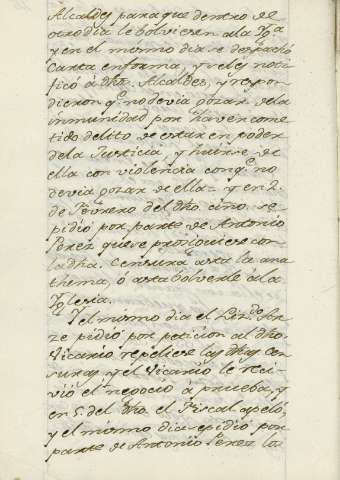 Alcaldes para que dentro de
otro dia le bolviesen a la Yg.ª
y en el mismo dia se despachò
Carta en forma, y se les noti
ficò à dhos. Alcaldes, y respon
dieron q.e no devia gozar de la
inmunidad por haver come
tido delito de estar en poder
de la Justicia y huirse de
ella con violencia con q.e no
devia gozar de ella = y en 2.
de Febrero del dho año se
pidiò por parte de Antonio
Perez que se prosiguiese con
la dha. Censura asta la ana
thema, ò asta bolverle à la
Yglesia.
Y el mismo dia el Liz.do
pidiò por peticion al dho.
Vicario repeliese las dhas cen
suras y el Vicario le reci
viò el negocio à prueba, y
en 5. del dho. el Fiscal apelò,
y el mismo dia se pidiò por
parte de Antonio Perez lo